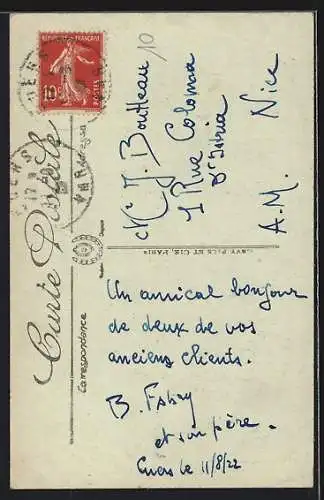 RÉPUBLIQUE FRANÇAISE
10
POSTES
CUERS
VAR
Carte Postale
Correspondance
Adresse
LEVY FILS ET CIE, PARIS
10
J. Boutteau
1 Rue Colonna
d'Istria
Nice
A.M.
Un amical bonjour
de deux de vos
anciens clients.
B. Fabry
et son père.
Cuers le 11/8/22